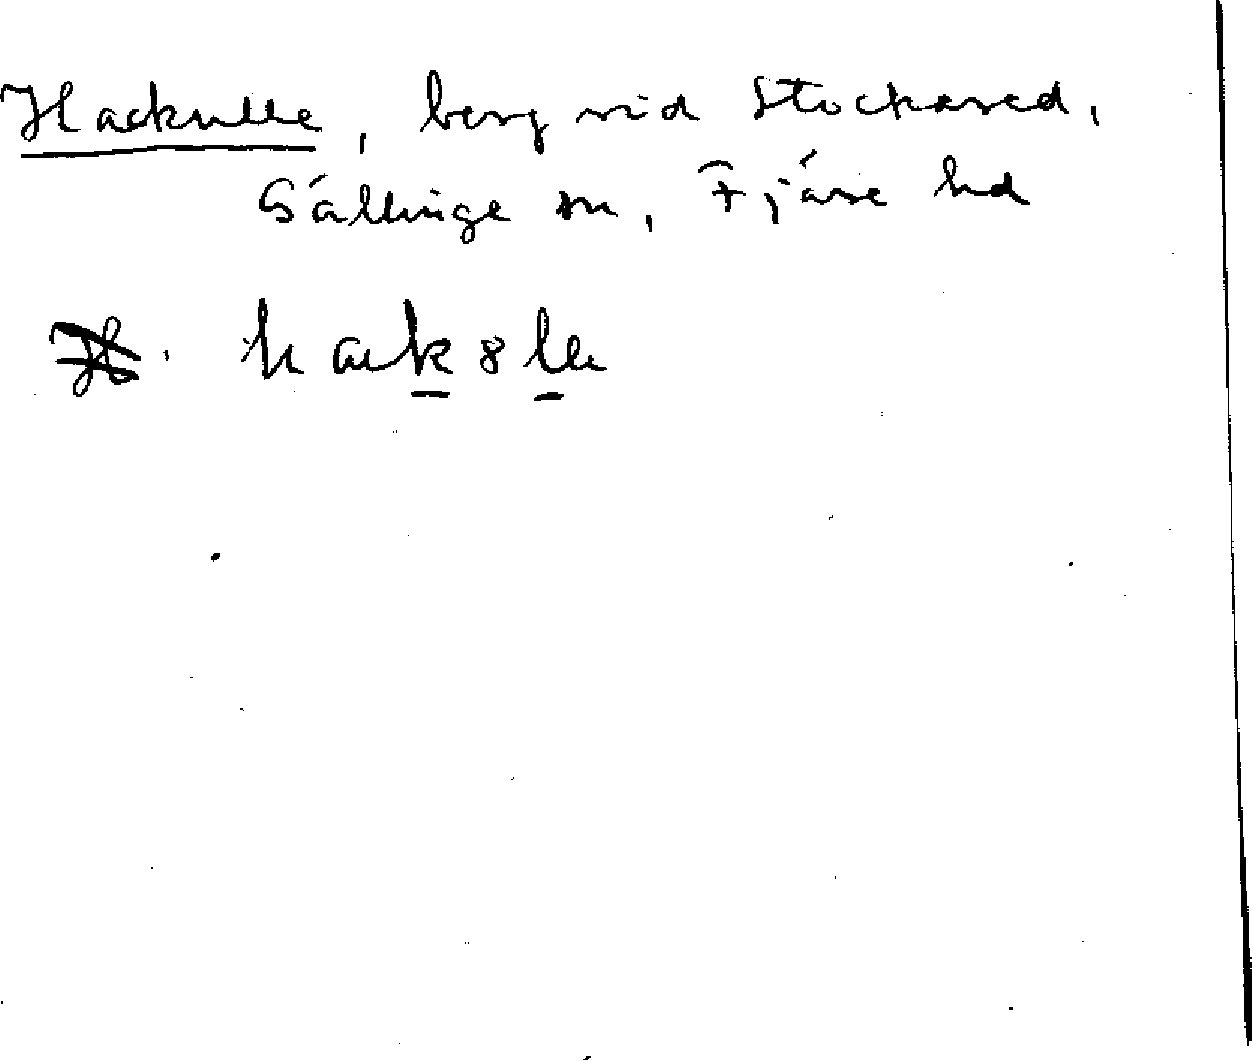 Hackulle, berg vid Stockared,
Gällinge sn, Fjäre hd
hak8lle